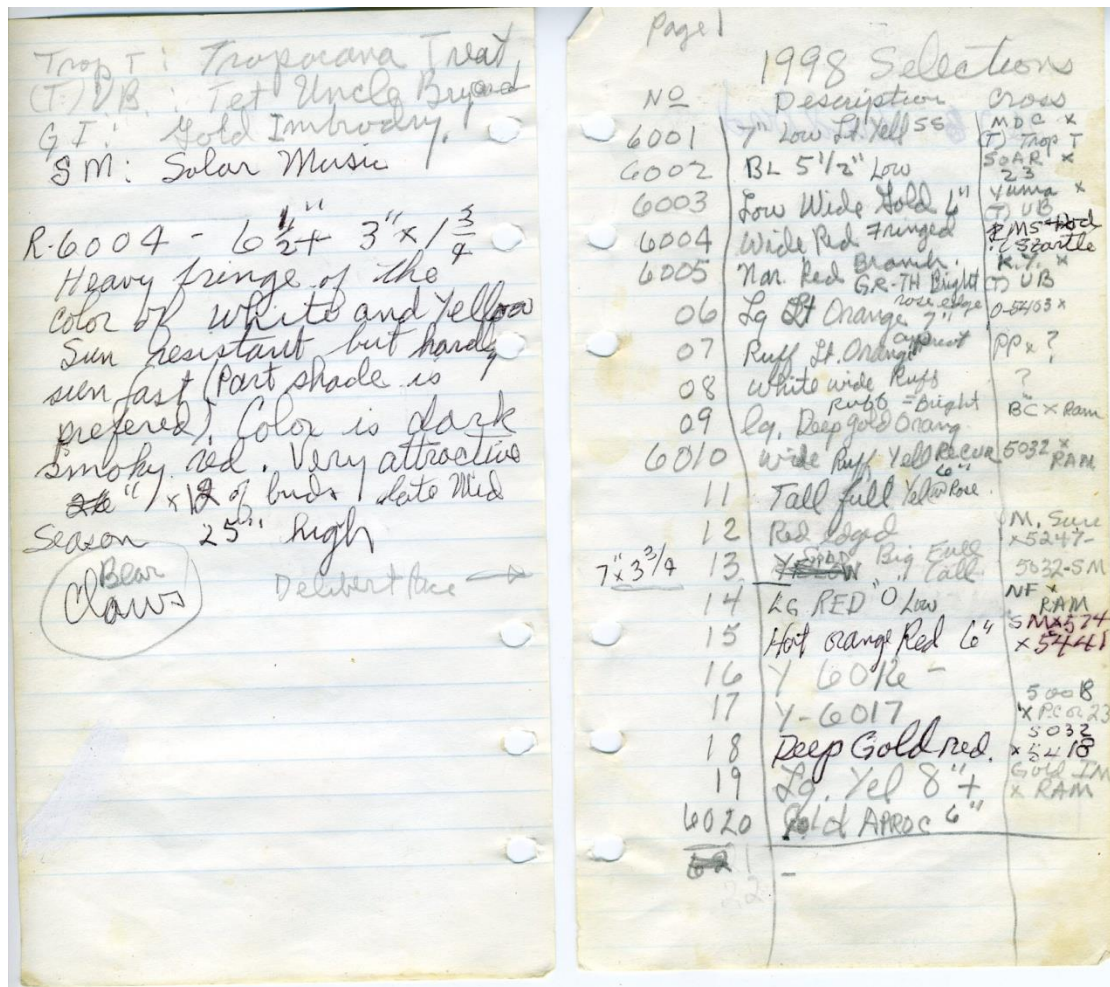 Trop T: Tropocana Treat
(T) UB.: Tet Uncle Bryard
G I: Gold Imbrodry.
SM: Solar Music
R-6004 - 6 1/2"+ 3" x 1 3/4
Heavy fringe of the
color of white and Yellow
Sun resistant but hardly
sun fast (Part shade is
prefered) Color is dark
smoky red. Very attractive
" x 12 of buds late Mid
Season 25" high
Bear
Claws
Page 1
1998 Selections
No Description Cross
6001 7" Low Lt. Yell SS MDC x (T) Trop T
6002 BL 5 1/2" Low SOAR x 23
6003 Low Wide Gold 6" Yuma x (T) UB
6004 Wide Red Fringed
6005 Nar. Red Branch. GR-TH Bright R.Y. x (T) UB
06 Lg Lt Orange 7" rose edge 0-5403 x
07 Ruff Lt. Orange PP x ?
08 White wide Ruff ?
09 Lg. Deep gold Orang. Ruff = Bright BC x Ram
6010 Wide Ruff Yell Recur 6" 5032 x RAM
11 Tall full Yel Rose
12 Red edged M. Sure x 5247-
7" x 3 3/4 13 Big Full Tall 5032-SM
14 LG RED "O" Low NF x RAM
15 Hot orange Red 6" SM x 574 x 5441
16 Y 6016 -
17 Y-6017 5008 x PC or 23
18 Deep Gold red. 5032 x 5418
19 Lg. Yel 8"+ Gold IM x RAM
6020 Gold APROC 6"
21 -
22